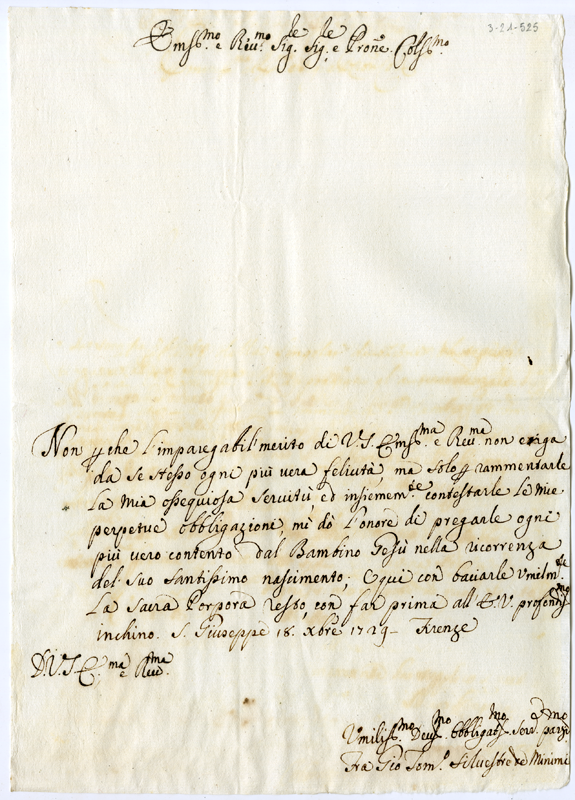 3-21-525
Em̃s.mo e Rev.mo Sig.le Sig.le e Prone Cols.mo
Non p che l'imparegabil'merito di V.S. Em̃s.ma e Rev.ma non esiga
da se stesso ogni più vera felicità, ma solo p rammentarle
la mia ossequiosa servitù, ed insiemem.te contestarle le mie
perpetue obbligazioni, mi dò l'onore di pregarle ogni
più vero contento dal Bambino Gesù nella ricorrenza
del suo Santissimo nascimento; E qui con baciarle Umilm.te
la sacra Porpora resto, con far prima all'E.V. profondis.mo
inchino. S. Giuseppe 18. xbre 1729 Firenze
D.V.S.E.ma e Rev.ma
Umiliss.mo Dev.mo Obbligat.mo Serv.
Fra Gio Tom.o Silvestre de Minimi